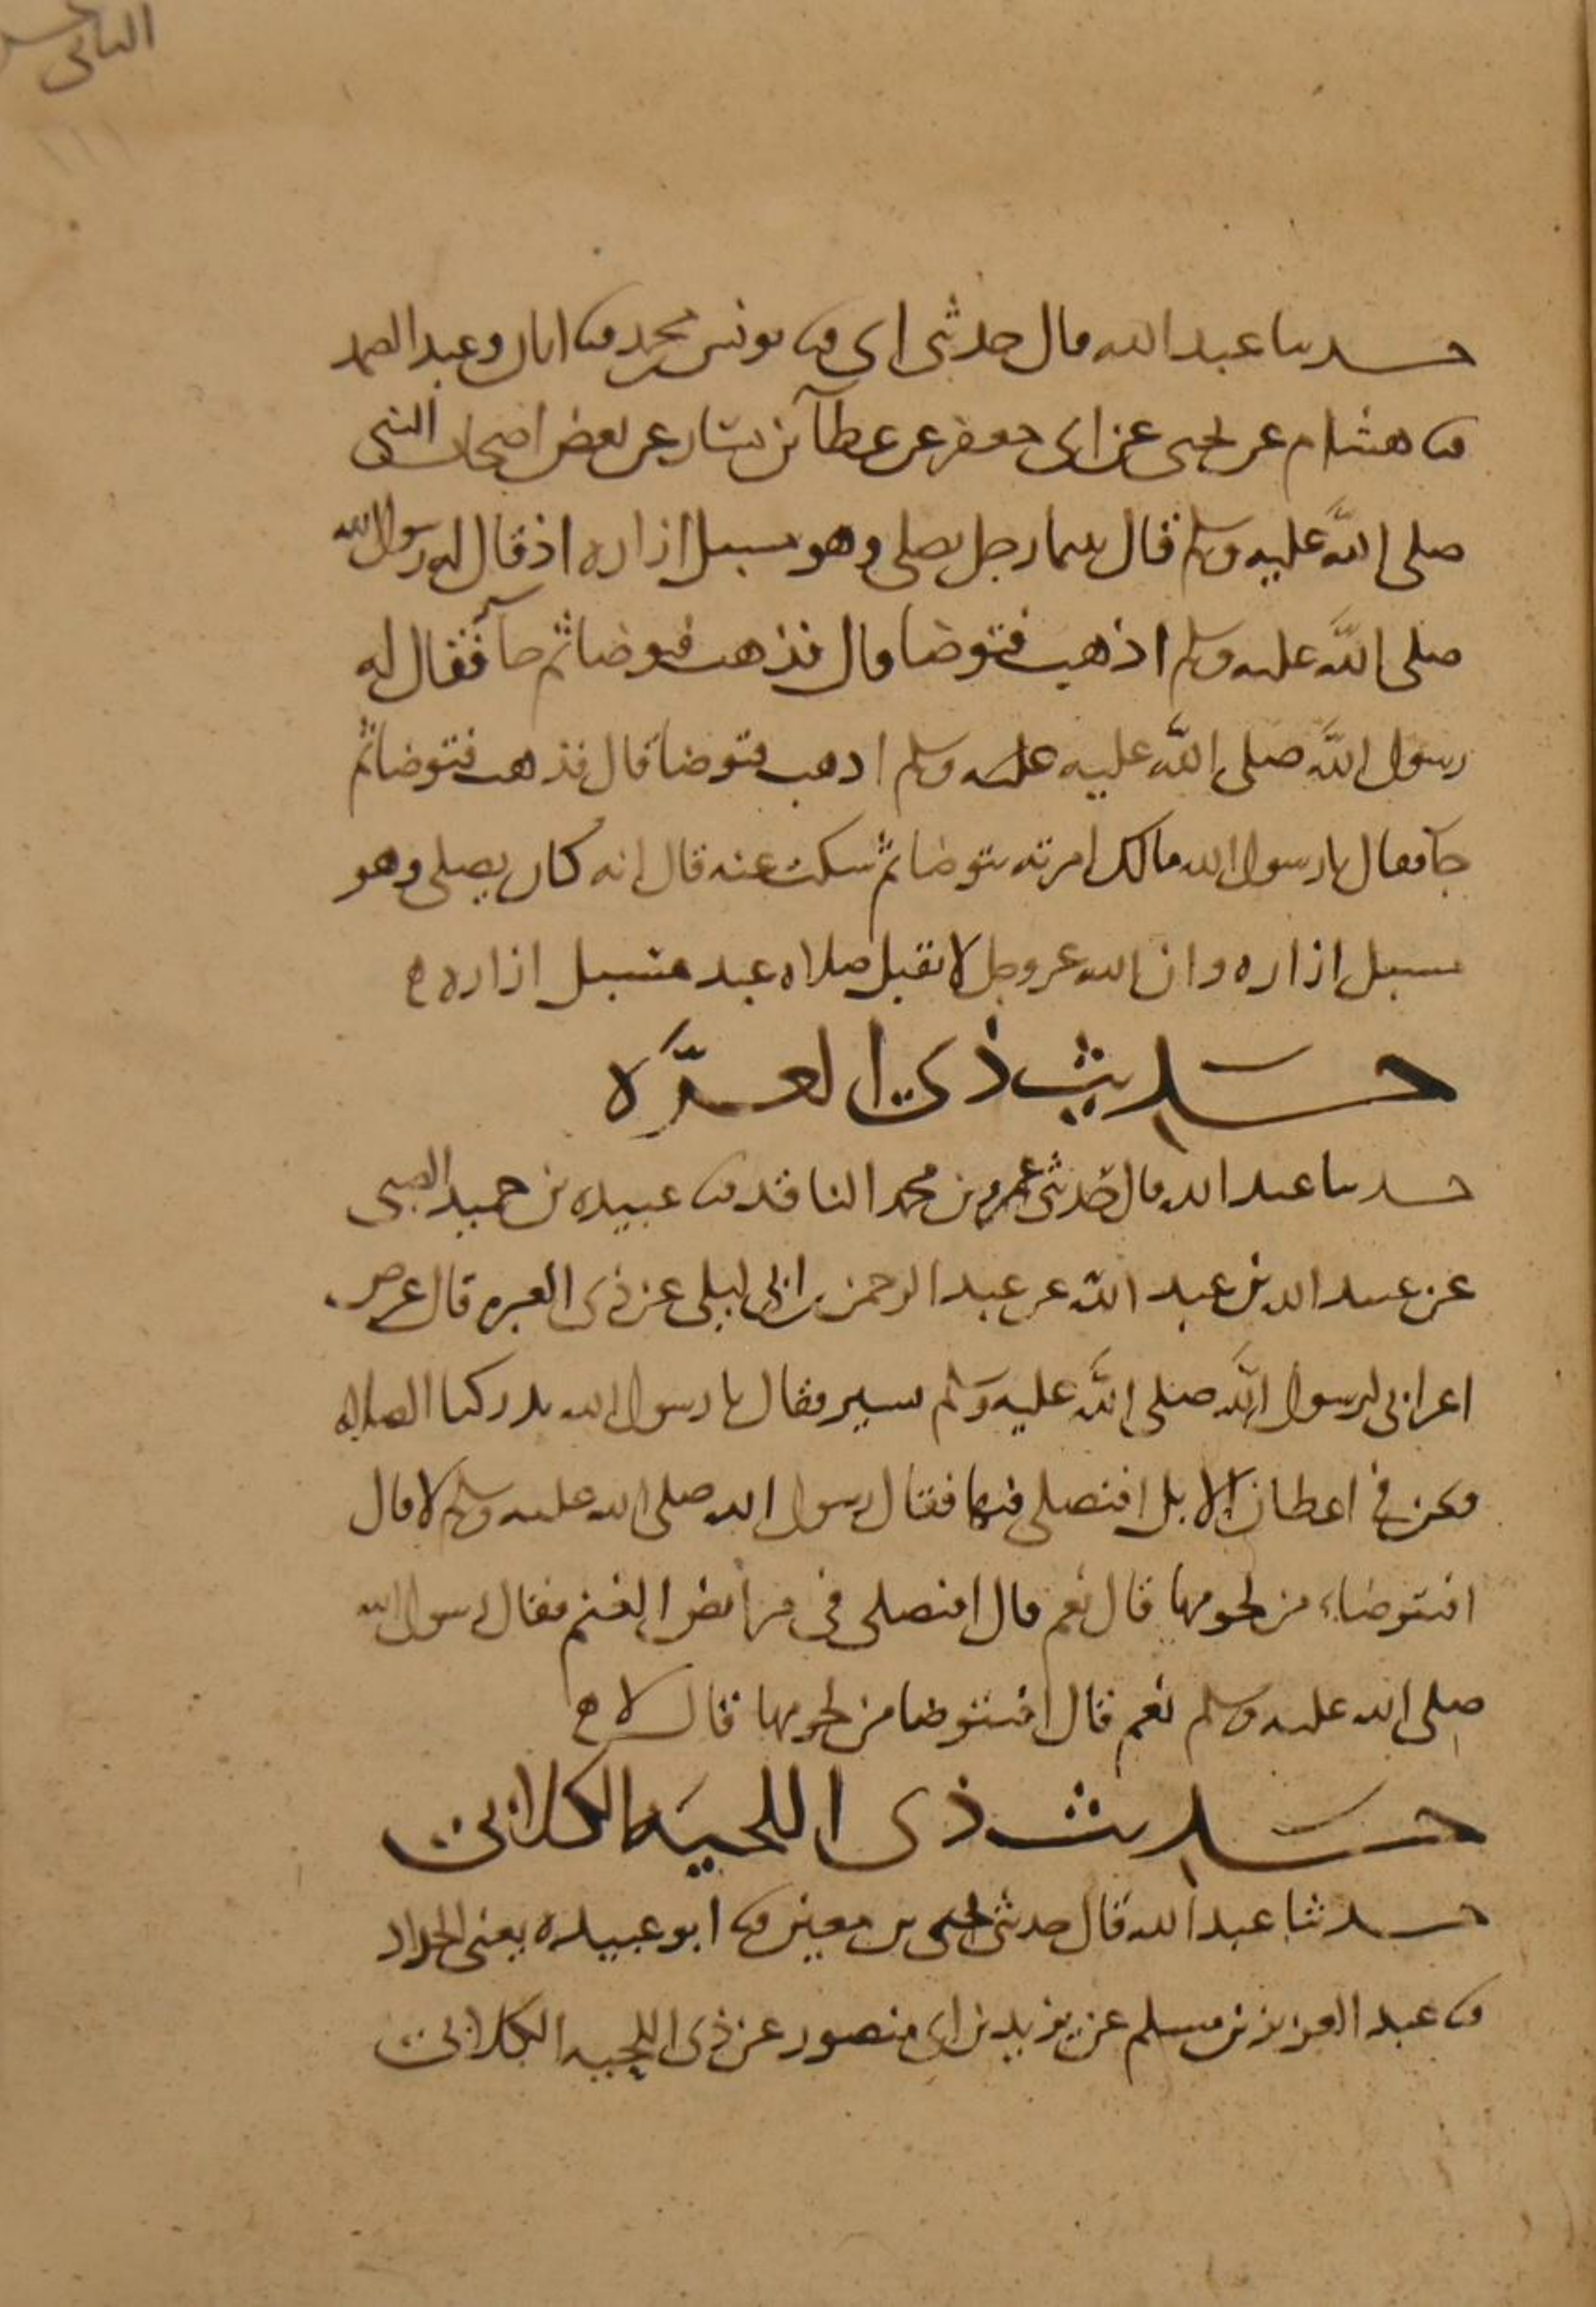 الثاني
حدثنا عبد الله قال حدثني ابي ثنا يونس بن محمد ثنا ابان وعبد الصمد
ثنا هشام عن يحيى عن ابي جعفر عن عطآ بن يسار عن بعض اصحاب النبي
صلى الله عليه وسلم قال بينما رجل يصلي وهو مسبل ازاره اذ قال له رسول الله
صلى الله عليه وسلم اذهب فتوضا قال فذهب فتوضا ثم جآ فقال له
رسول الله صلى الله عليه عليه وسلم اذهب فتوضا قال فذهب فتوضا ثم
جآ فقال يا رسول الله مالك امرته يتوضا ثم سكت عنه قال انه كان يصلي وهو
مسبل ازاره وان الله عز وجل لا يقبل صلاة عبد مسبل ازاره
حديث ذي الغرَّه
حدثنا عبد الله قال حدثني عمرو بن محمد الناقد ثنا عبيده بن حميد الضبي
عن عبيد الله بن عبد الله عن عبد الرحمن بن ابي ليلى عن ذي الغره قال عرض
اعرابي لرسول الله صلى الله عليه وسلم يسير فقال يا رسول الله تدركنا الصلاه
ونحن في اعطان الابل افنصلي فيها فقال رسول الله صلى الله عليه وسلم لا قال
افنتوضاء من لحومها قال نعم قال افنصلي في مرابض الغنم فقال رسول الله
صلى الله عليه وسلم نعم قال افنتوضا من لحومها قال لا
حديث ذي اللحيه الكلابي
حدثنا عبد الله قال حدثني يحيى بن معين ثنا ابو عبيده يعني الحداد
ثنا عبد العزيز بن مسلم عن يزيد بن ابي منصور عن ذي اللحيه الكلابي